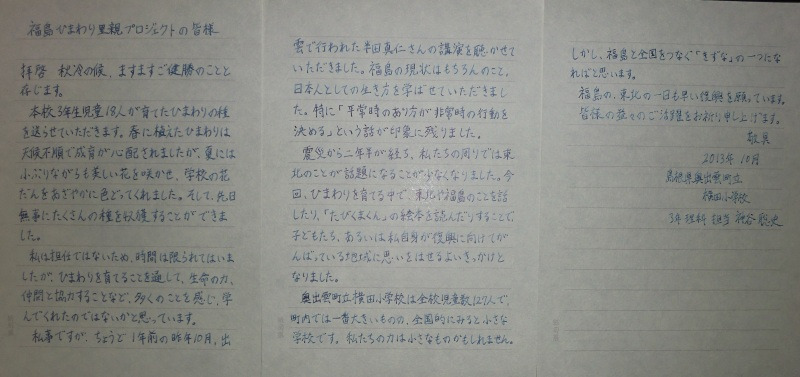 福島ひまわり里親プロジェクトの皆様
拝啓 秋冷の候、ますますご健勝のことと
存じます。
本校3年生児童18人が育てたひまわりの種
を送らせていただきます。春に植えたひまわりは
天候不順で成育が心配されましたが、夏には
小ぶりながらも美しい花を咲かせ、学校の花
だんをあざやかに色どってくれました。そして、先日
無事にたくさんの種を収穫することができま
した。
私は担任ではないため、時間は限られてはいま
したが、ひまわりを育てることを通して、生命の力、
仲間と協力することなど、多くのことを感じ、学
んでくれたのではないかと思っています。
私事ですが、ちょうど1年前の昨年10月、出
雲で行われた半田真仁さんの講演を聴かせて
いただきました。福島の現状はもちろんのこと、
日本人としての生き方を学ばせていただきまし
た。特に「平常時のあり方が非常時の行動を
決める」という話が印象に残りました。
震災から二年半が経ち、私たちの周りでは東
北のことが話題になることが少なくなりました。今
回、ひまわりを育てる中で、東北や福島のことを話
したり、「たびくまくん」の絵本を読んだりすることで、
子どもたち、あるいは私自身が復興に向けてが
んばっている地域に思いをはせるよいきっかけと
なりました。
奥出雲町立横田小学校は全校児童数127人で、
町内では一番大きいものの、全国的にみると小さな
学校です。私たちの力は小さなものかもしれません。
しかし、福島と全国をつなぐ「きずな」の一つにな
ればと思います。
福島の、東北の一日も早い復興を願っています。
皆様の益々のご活躍をお祈り申し上げます。
敬具
2013年10月
島根県奥出雲町立
横田小学校
3年理科担当 神谷